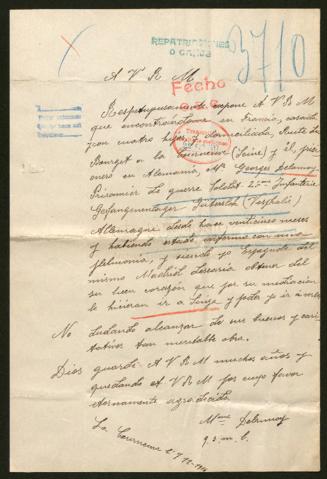 REPATRIACIONES
O CANJE
3710
A V R M
Fecho
Respetuosamente expone A V R M
que encontrandome en Francia, casada
con cuatro hijos y domiciliada, Route du
Bourget a la Courneuve (Seine) y él, prisi
onero en Alemania, Mr George Delaunoy
Prisonnier de guerre Soldat 2eme Infanterie
Gefangenenlager Gütersloh (Vesfhalie)
Allemagne desde hace venticinco meses
y habiendo estado enfermo con una
plebmonia, y siendo yo Española del
mismo Madrid
su buen corazon que por su mediación
le hicieran ir a Suiza y poder yo ir a verle
No dudando alcanzar de sus buenos y cari
tativos tan meritable obra.
Dios guarde A V R M muchos años y
quedando A V R M por cuyo favor
eternamente agradecida
Mme Delaunoy
La Courneuve